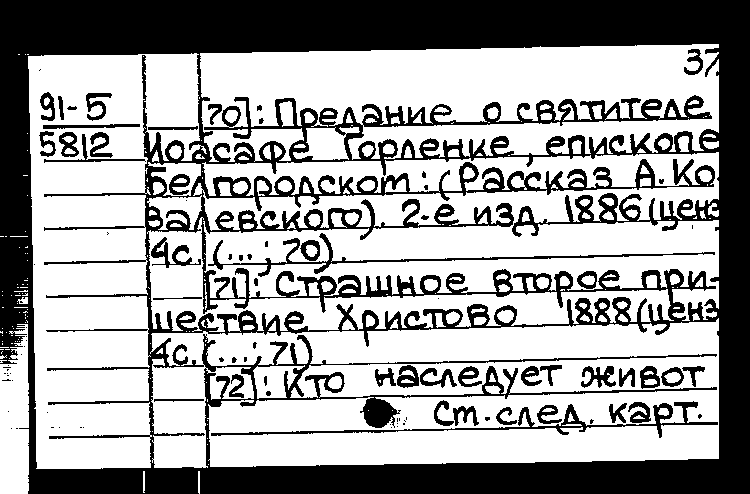 37.
91-5 [70]: Предание о святителе
5812 Иоасафе Горленке, епископе
Белгородском: (Рассказ А. Ко-
валевского). 2-е изд. 1886 (ценз
4с. (...; 70).
[71]: Страшное второе при-
шествие Христово. 1888 (ценз
4с. (...; 71).
[72]: Кто наследует живот
См. след. карт.